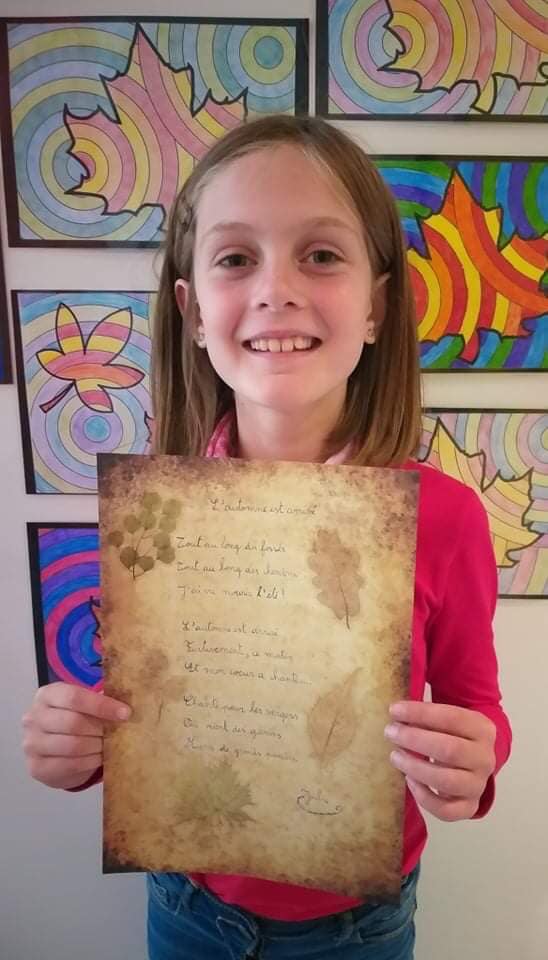 L'automne est arrivé
Tout au long du fossé
Tout au long des chemins
J'ai vu mourir l'été !
L'automne est arrivé
Furtivement, ce matin
Et mon cœur a chanté...
Chanté pour les vergers
Où rient des gamins